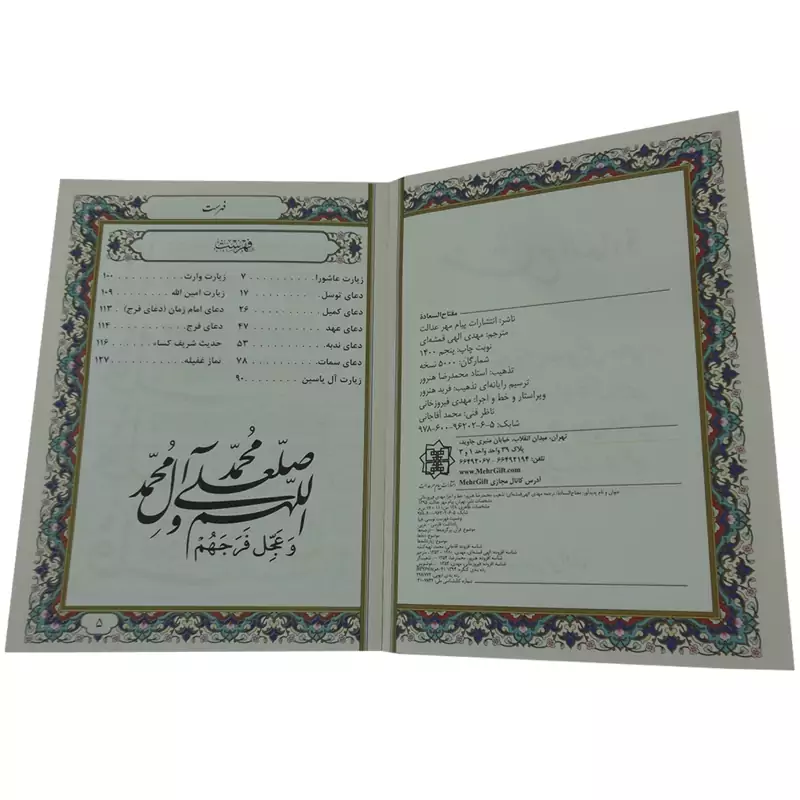 مفتاح‌السعادة
ناشر: انتشارات پیام مهر عدالت
مترجم: مهدی الهی قمشه‌ای
نوبت چاپ: پنجم ۱۴۰۰
شمارگان: ۵۰۰۰ نسخه
تذهیب: استاد محمدرضا هنرور
ترسیم رایانه‌ای تذهیب: فرید هنرور
ویراستار و خط و اجرا: مهدی فیروزخانی
ناظر فنی: محمد آقاجانی
شابک: ۵-۶-۹۶۲۰۲-۶۰۰-۹۷۸
تهران، میدان انقلاب، خیابان منیری جاوید،
پلاک ۳۹ واحد ۱ و ۲
تلفن: ۶۶۴۹۲۱۹۴ - ۶۶۴۹۴۰۶۷
www.MehrGift.com
آدرس کانال مجازی MehrGift
فهرست
فهرست
زیارت عاشورا ۷
دعای توسل ۱۷
دعای کمیل ۲۶
دعای عهد ۴۷
دعای ندبه ۵۳
دعای سمات ۷۸
زیارت آل یاسین ۹۰
زیارت وارث ۱۰۰
زیارت امین الله ۱۰۹
دعای امام زمان (دعای فرج) ۱۱۳
دعای فرج ۱۱۴
حدیث شریف کساء ۱۱۶
نماز غفیله ۱۲۷
اللهم صل علی محمد و آل محمد
وَ عَجِّل فَرَجَهُم
۵